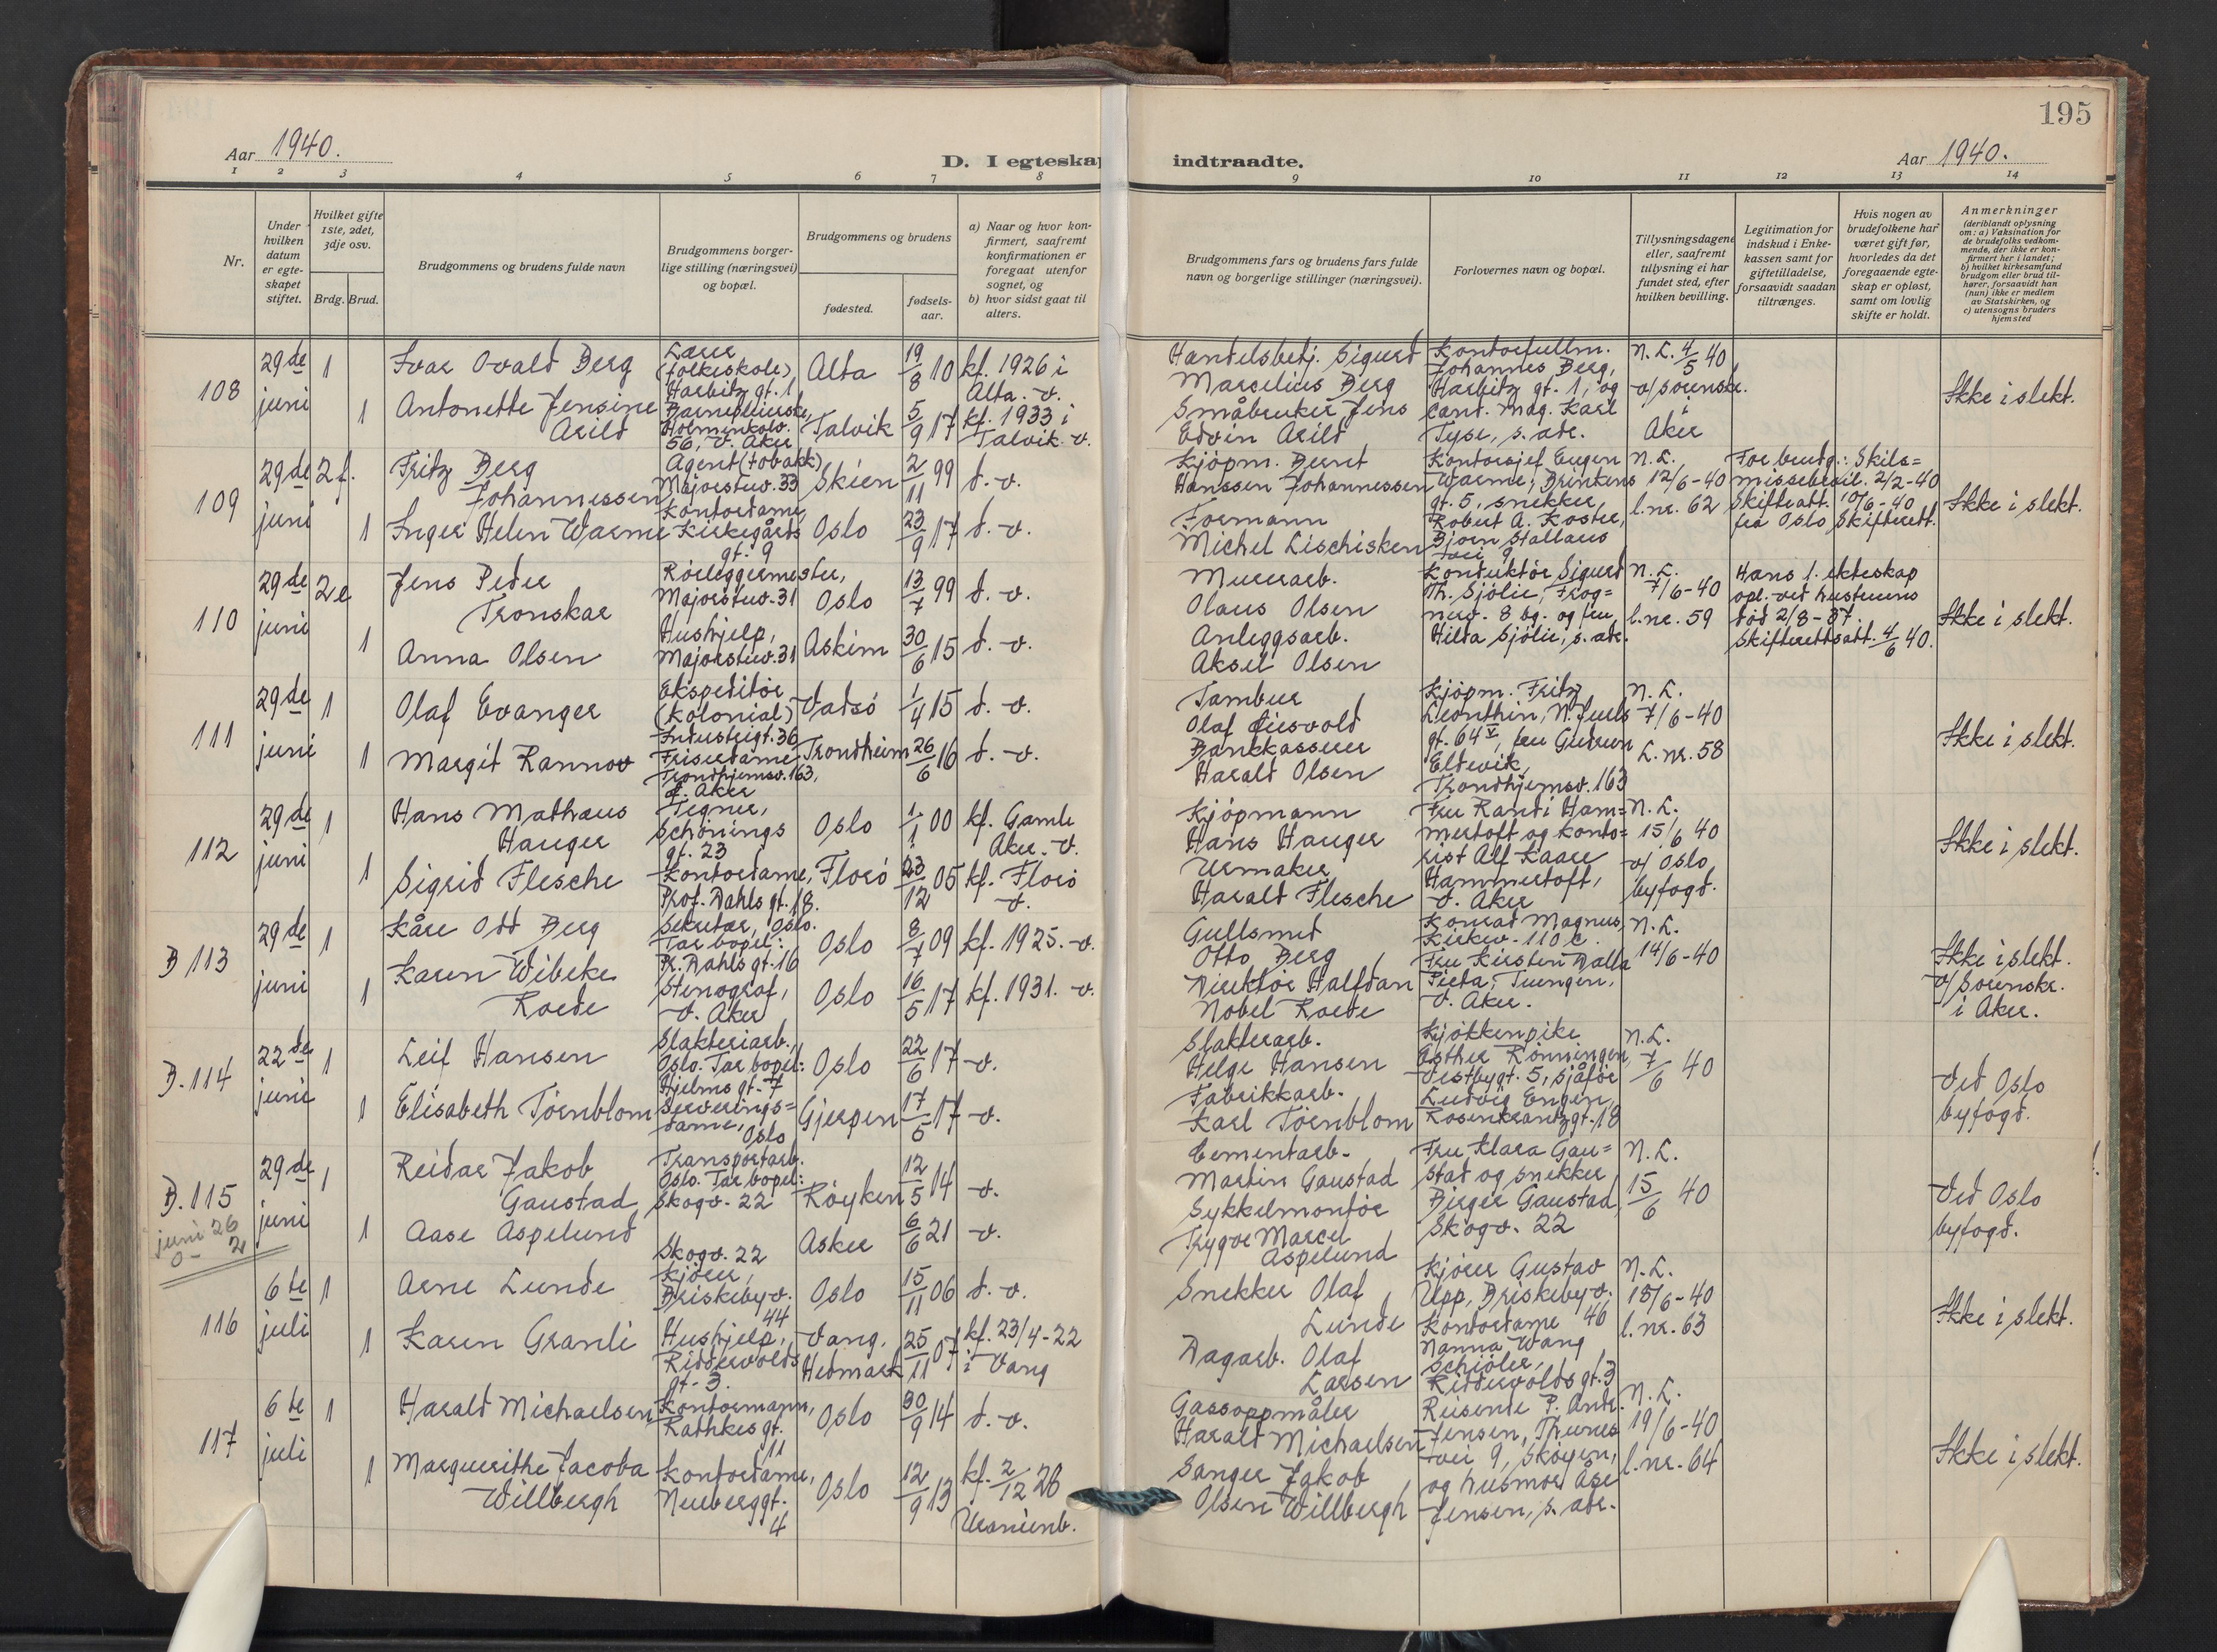 195
Aar 1940.
D. I egteskap indtraadte.
Aar 1940.
1 2 3 4 5 6 7 8 9 10 11 12 13 14
Nr.
Under
hvilken
datum
er egte-
skapet
stiftet.
Hvilket gifte
1ste, 2det,
3dje osv.
Brdg. Brud.
Brudgommens og brudens fulde navn
Brudgommens borger-
lige stilling (næringsvei)
og bopæl.
Brudgommens og brudens
fødested.
fødsels-
aar.
a) Naar og hvor kon-
firmert, saafremt
konfirmationen er
foregaat utenfor
sognet, og
b) hvor sidst gaat til
alters.
Brudgommens fars og brudens fars fulde
navn og borgerlige stillinger (næringsvei).
Forlovernes navn og bopæl.
Tillysningsdagene
eller, saafremt
tillysning ei har
fundet sted, efter
hvilken bevilling.
Legitimation for
indskud i Enke-
kassen samt for
giftetilladelse,
forsaavidt saadan
tiltrænges.
Hvis nogen av
brudefolkene har
været gift før,
hvorledes da det
foregaaende egte-
skap er opløst,
samt om lovlig
skifte er holdt.
Anmerkninger
(deriblandt oplysning
om: a) Vaksination for
de brudefolks vedkom-
mende, der ikke er kon-
firmert her i landet;
b) hvilket kirkesamfund
brudgom eller brud til-
hører, forsaavidt han
(hun) ikke er medlem
av Statskirken, og
c) utensogns bruders
hjemsted
108
29de
juni
1
1
Ivar Ovald Berg
Antonette Jensine
Arild
Lærer
(folkeskole)
Harbitz gt. 1
Barnepleierske,
Holmenkolv.
56, V. Aker
Alta
Talvik
19/8 10
5/9 17
kf. 1926 i
Alta. v.
kf. 1933 i
Talvik. v.
Handelsbetj. Sigurd
Marselius Berg
Småbruker Jens
Edvin Arild
Kontorfullm.
Johannes Berg,
Harbitz gt. 1, og
cand. mag. Karl
Tyse, s. adr.
N. L. 4/5 40
v/ sorenskr.
i
Aker
Ikke i slekt.
109
29de
juni
2 f.
1
Fritz Berg
Johannessen
Inger Helen Warme
Agent (tobakk)
Majorstuv. 33
Kontordame,
Kirkegårds
gt. 9
Skien
Oslo
2/11 99
23/9 17
d. v.
d. v.
Kjöpm. Bernt
Hanssen Johannessen
Formann
Michel Lischisken
Kontorsjef Eugen
Warme, Brinkens
gt. 5, snekker
Robert A. Koster,
Björn Stallaus
vei 9
N. L.
12/6-40
l. nr. 62
For brudg.: Skils=
missebevil. 2/2-40
Skifteatt. 10/6-40
fra Oslo Skifterett.
Ikke i slekt.
110
29de
juni
2 e
1
Jens Peder
Tronskar
Anna Olsen
Rörleggermester,
Majorstuv. 31
Hushjelp,
Majorstuv. 31
Oslo
Askim
13/7 99
30/6 15
d. v.
d. v.
Murerarb.
Olaus Olsen
Anleggsarb.
Aksel Olsen
Konduktör Sigurd
Th. Sjölie, Frog=
nerv. 8 bg. og fru
Hilda Sjölie, s. adr.
N. L.
7/6-40
l. nr. 59
Hans 1. ekteskap
opl. ved hustruens
död 2/8-37.
Skifterettsatt. 4/6 40.
Ikke i slekt.
111
29de
juni
1
1
Olaf Evanger
Margit Rannov
Ekspeditör
(kolonial)
Industrigt. 36
Friserdame
Trondhjemsv. 163,
Ö. Aker
Vadsö
Trondheim
1/4 15
26/6 16
d. v.
d. v.
Tambur
Olaf Eiesvold
Bankkasserer
Harald Olsen
Kjöpm. Fritz
Leonthin, N. Juels
gt. 64 V, fru Gudrun
Eldevik,
Trondhjemsv. 163
N. L.
7/6-40
L. nr. 58
Ikke i slekt.
112
29de
juni
1
1
Hans Mathæus
Hauger
Sigrid Flesche
Tegner,
Schönings
gt. 23
Kontordame,
Prof. Dahls gt. 18.
Oslo
Florö
1/1 00
23/12 05
kf. Gamle
Aker. v.
kf. Florö
v.
Kjöpmann
Hans Hauger
Urmaker
Harald Flesche
Fru Randi Ham=
mertoft og konto=
rist Alf Kaare
Hammertoft,
V. Aker
N. L.
15/6 40
v/ Oslo
byfogd.
Ikke i slekt.
B 113
29de
juni
1
1
Kåre Odd Berg
Karen Wibeke
Roede
Sekretær, Oslo.
Tar bopel:
Pr. Dahls gt. 16
Stenograf,
V. Aker
Oslo
Oslo
8/7 09
16/5 17
kf. 1925. v.
kf. 1931. v.
Gullsmed
Otto Berg
Direktör Halfdan
Nobel Roede
Konrad Magnus,
Kirkev. 110 c.
Fru Kirsten Dalla
Pieta, Tuengen,
V. Aker.
N. L.
14/6-40
Ikke i slekt.
v/ Sorenskr.
i Aker.
B. 114
22de
juni
1
1
Leif Hansen
Elisabeth Törnblom
Slakteriarb.,
Oslo. Tar bopel:
Hjelms gt. 7
Serverings=
dame,
Oslo
Oslo
Gjerpen
22/6 17
17/5 17
v.
v.
Slakterarb.
Helge Hansen
Fabrikkarb.
Karl Törnblom
Kjökkenpike
Esther Rönningen,
Vestbygt. 5, sjåför
Ludvig Engen,
Rosenkrantzgt. 18
N. L.
7/6 40
Ved Oslo
byfogd.
B. 115
29de
juni
1
1
Reidar Jakob
Gaustad
Aase Aspelund
Transportarb.
Oslo. Tar bopel:
Skogv. 22
Skogv. 22
Röyken
Asker
12/5 14
6/6 21
v.
v.
Cementarb.
Martin Gaustad
Sykkelmontör
Trygve Marcel
Aspelund
Fru Klara Gau=
stad og snekker
Birger Gaustad,
Skogv. 22
N. L.
15/6 40
Ved Oslo
byfogd.
juni 26
0 - 2
116
6te
juli
1
1
Arne Lunde
Karen Granli
Kjörer,
Briskebyv.
44
Hushjelp,
Riddervolds
gt. 3.
Oslo
Vang,
Hedmark
15/11 06
25/11 07
d. v.
kf. 23/4-22
i Vang
Snekker Olaf
Lunde
Dagarb. Olaf
Larsen
Kjörer Gustav
Upp, Briskebyv.
46
Kontordame
Nanna Wang
Schiöler,
Riddervolds gt. 3
N. L.
15/6-40
l. nr. 63
Ikke i slekt.
117
6te
juli
1
1
Harald Michaelsen
Marguerithe Jacoba
Willbergh
Kontormann,
Rathkes gt.
11
Kontordame,
Neuberggt.
4
Oslo
Oslo
30/9 14
12/9 13
d. v.
kf. 2/12 28
Uranienb.
Gassoppmåler
Harald Michaelsen
Sanger Jakob
Olsen Willbergh
Reisende P. Andr.
Jensen, Thunes
vei 9, Sköyen,
og husmor Åse
Jensen, s. adr.
N. L.
19/6-40
l. nr. 64
Ikke i slekt.